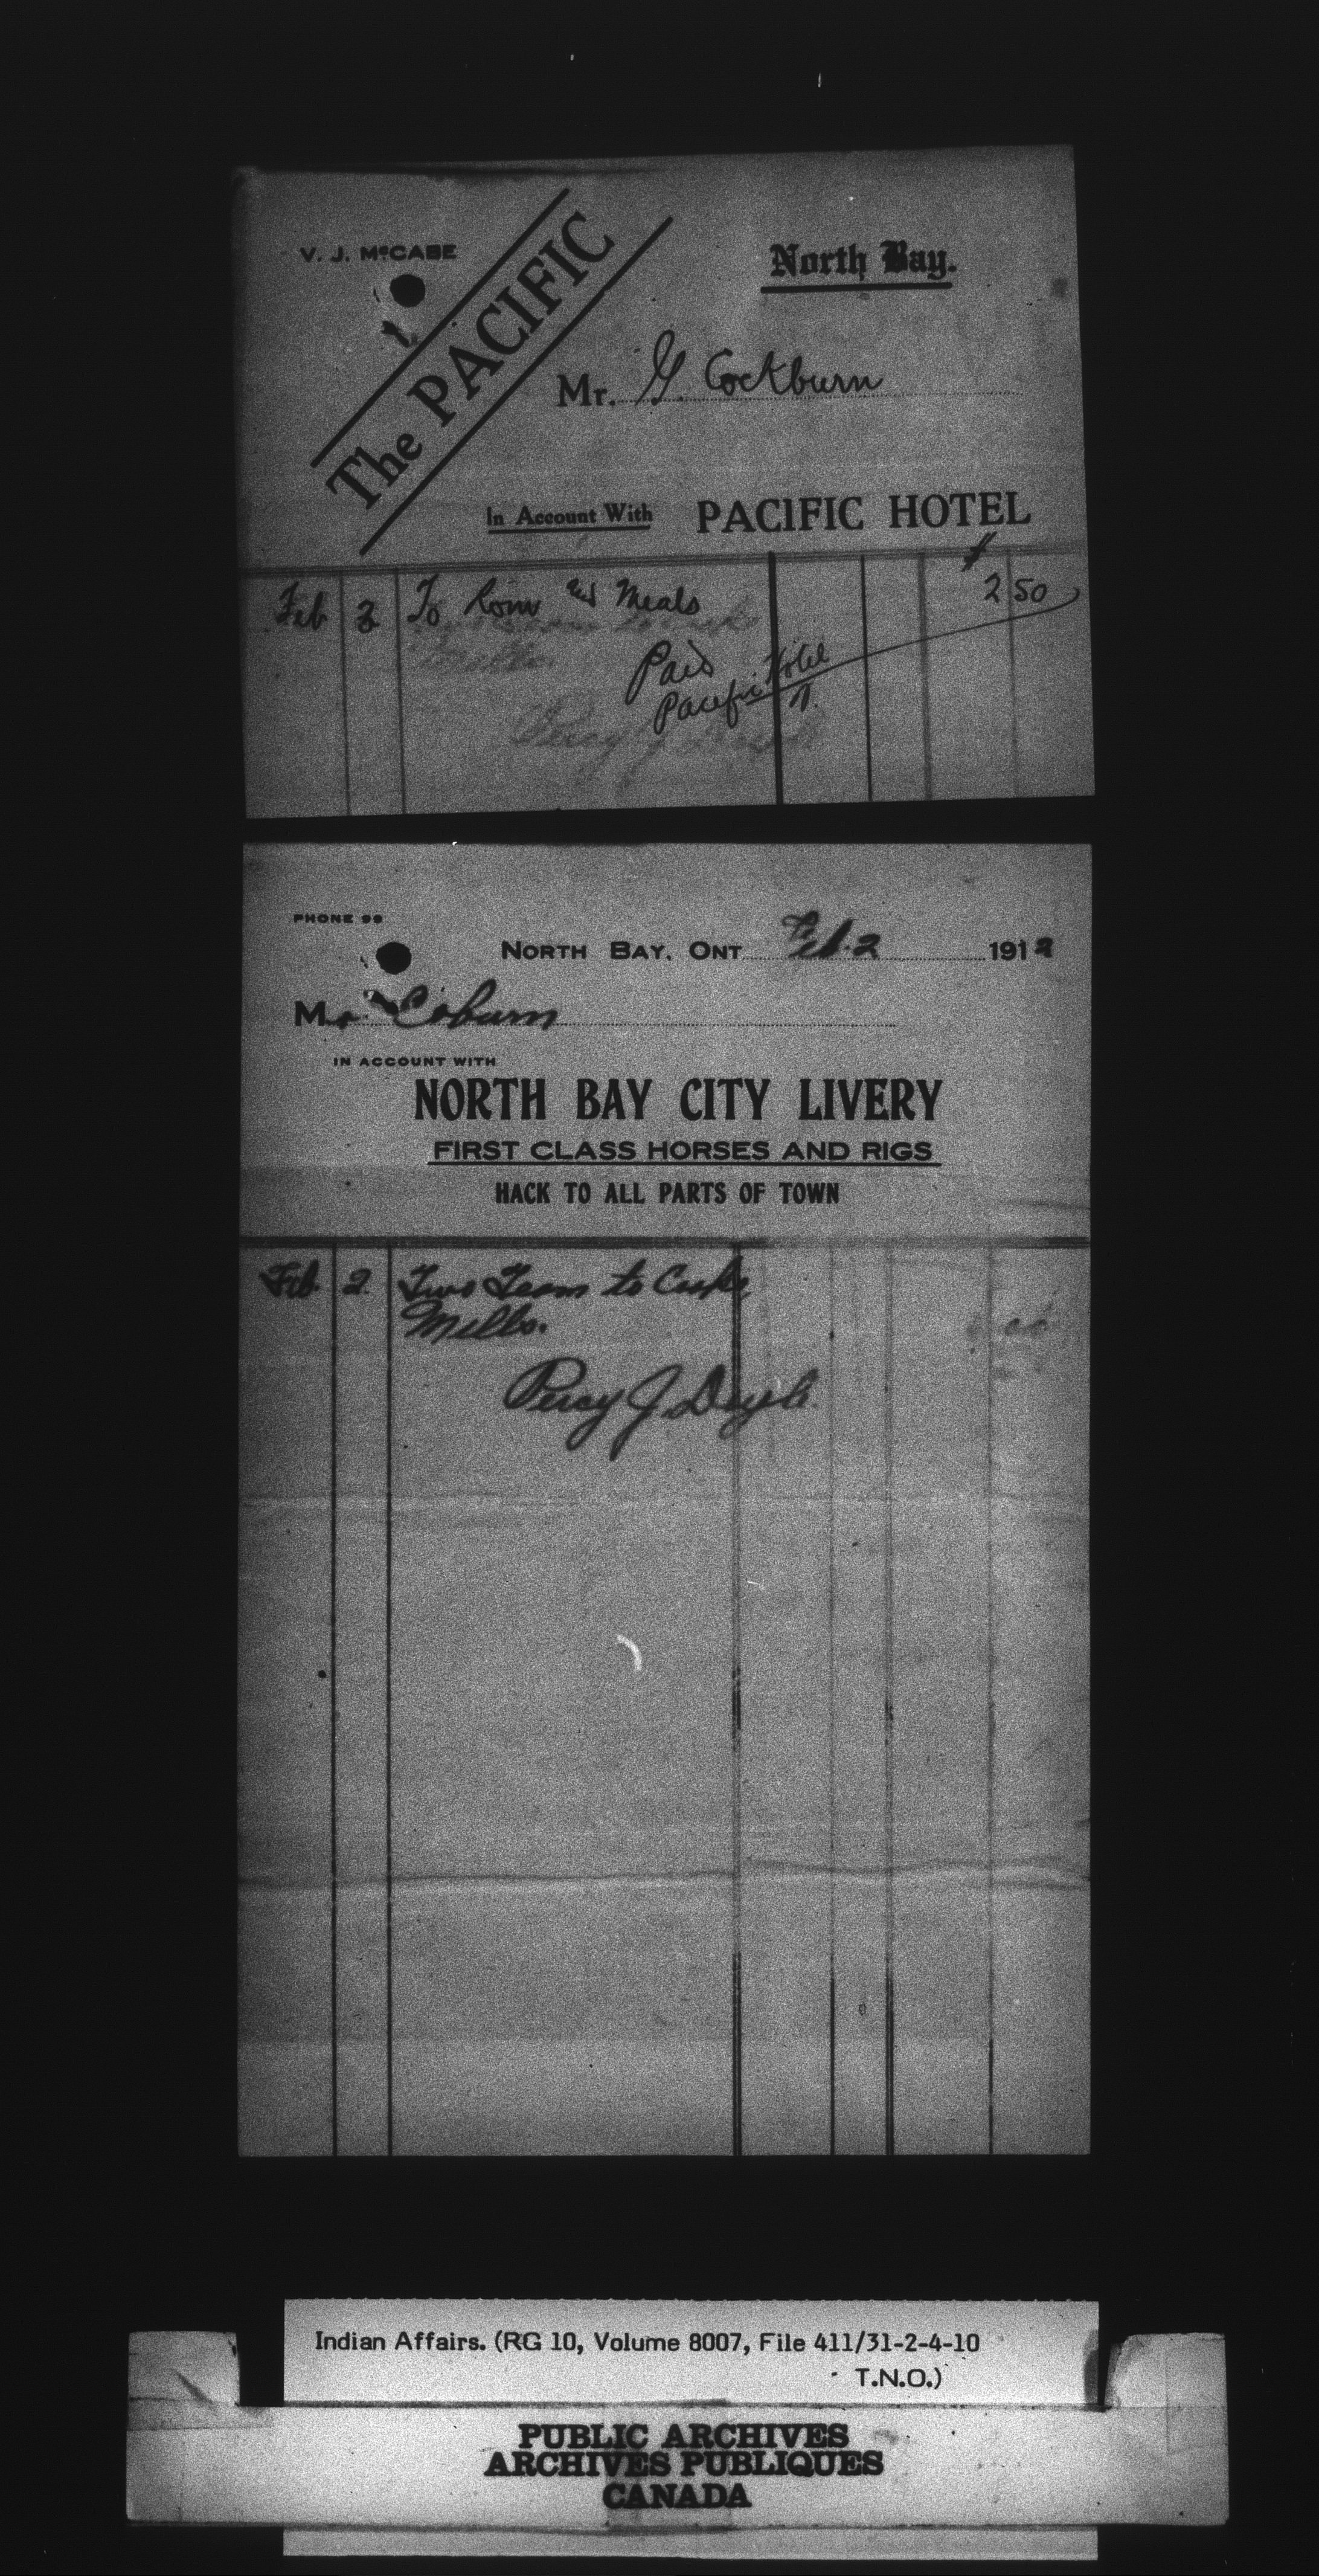 V. J. McCABE
The PACIFIC
North Bay.
Mr. G. Cockburn
In Account With PACIFIC HOTEL
$
Feb 2 To Room and Meals 2 50
Paid
Pacific Hotel
PHONE 99
NORTH BAY, ONT. Feb. 2 1912
Mr. Coburn
IN ACCOUNT WITH
NORTH BAY CITY LIVERY
FIRST CLASS HORSES AND RIGS
HACK TO ALL PARTS OF TOWN
Feb. 2. Two Team to Cooks
Mills.
Percy J. Doyle
Indian Affairs. (RG 10, Volume 8007, File 411/31-2-4-10
T.N.O.)
PUBLIC ARCHIVES
ARCHIVES PUBLIQUES
CANADA